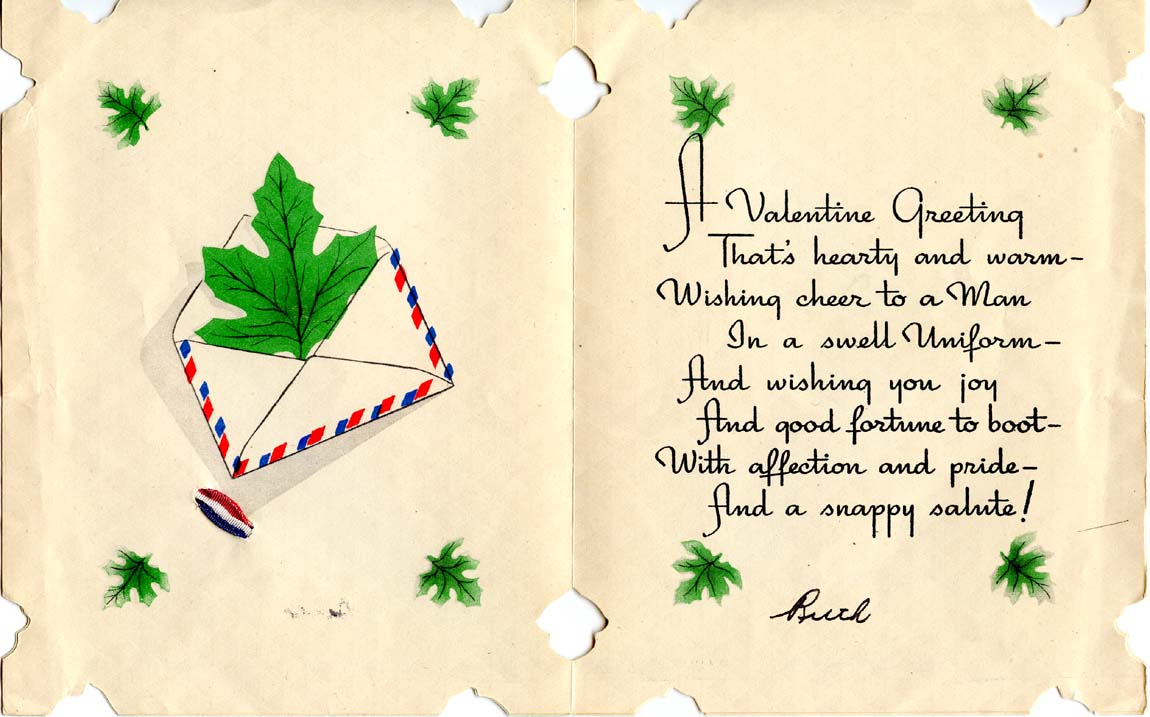 A Valentine Greeting
That's hearty and warm-
Wishing cheer to a Man
In a swell Uniform-
And wishing you joy
And good fortune to boot-
With affection and pride-
And a snappy salute!
Ruth